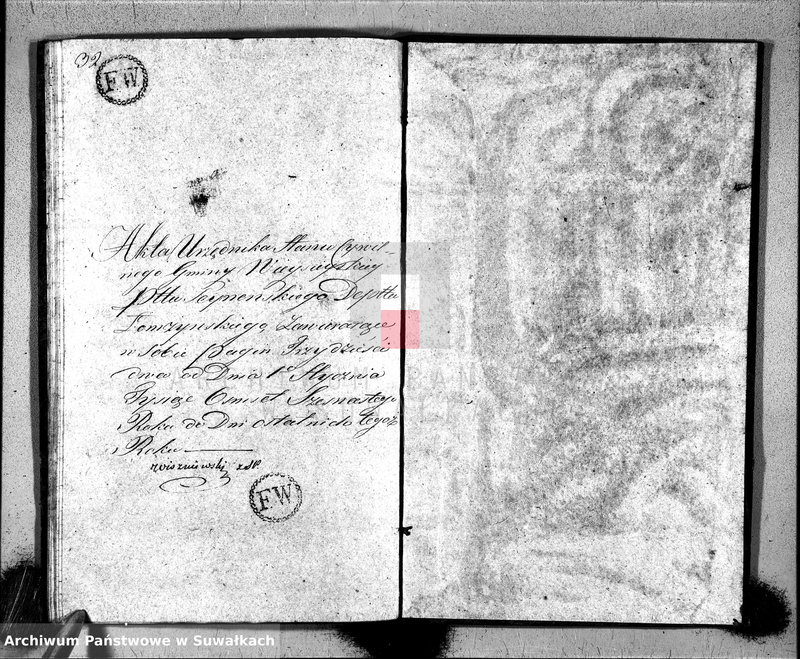 32
FW
Akta Urzędnika Stanu Cywil-
nego Gminy
Pttu Seynenskiego Deptu
Łomżynskiego Zawieraiące
w sobie pagin Trzydzieści
dwa od Dnia 1go Stycznia
Tysiąc Osmset Szesnastego
Roku do Dni ostatnich tegoż
Roku
Wiszniewski
FW
Archiwum Państwowe w Suwałkach